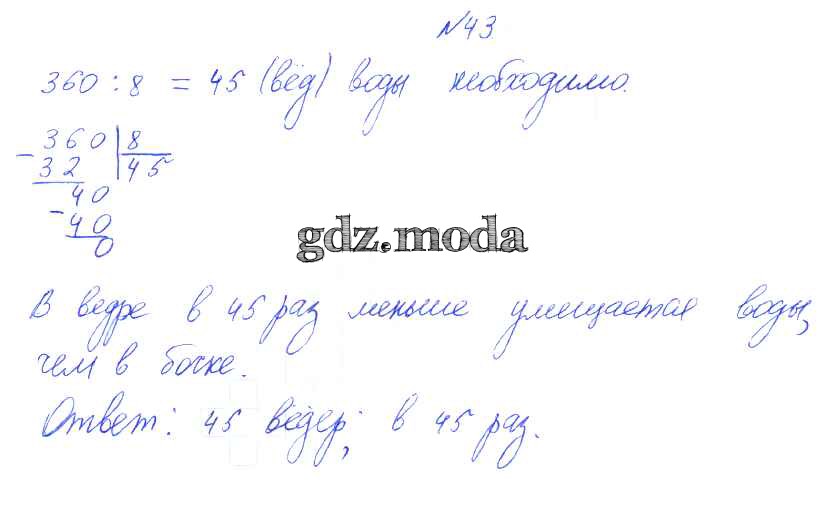 №43
360 : 8 = 45 (вёд) воды необходимо.
- 360 | 8
32 | 45
40
- 40
0
gdz.moda
В ведре в 45 раз меньше умещается воды,
чем в бочке.
Ответ: 45 вёдер; в 45 раз.